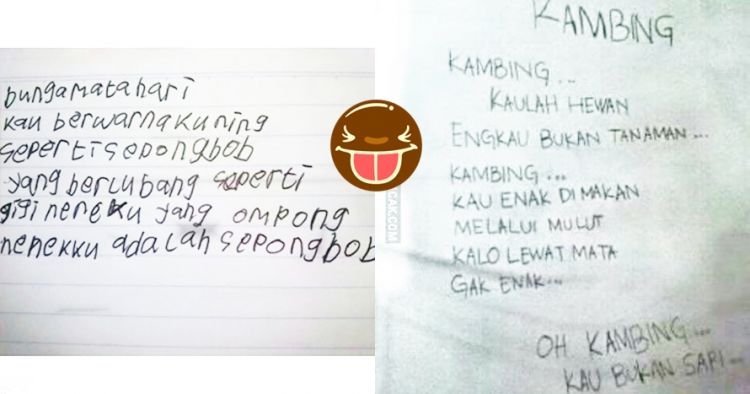 bungamatahari
kau berwarnakuning
sepertisepongbob
yang berlubang seperti
gigi neneku yang ompong
nenekku adalah sepongbob
KAMBING
KAMBING...
KAULAH HEWAN
ENGKAU BUKAN TANAMAN...
KAMBING...
KAU ENAK DI MAKAN
MELALUI MULUT
KALO LEWAT MATA
GAK ENAK...
OH KAMBING...
KAU BUKAN SAPI...